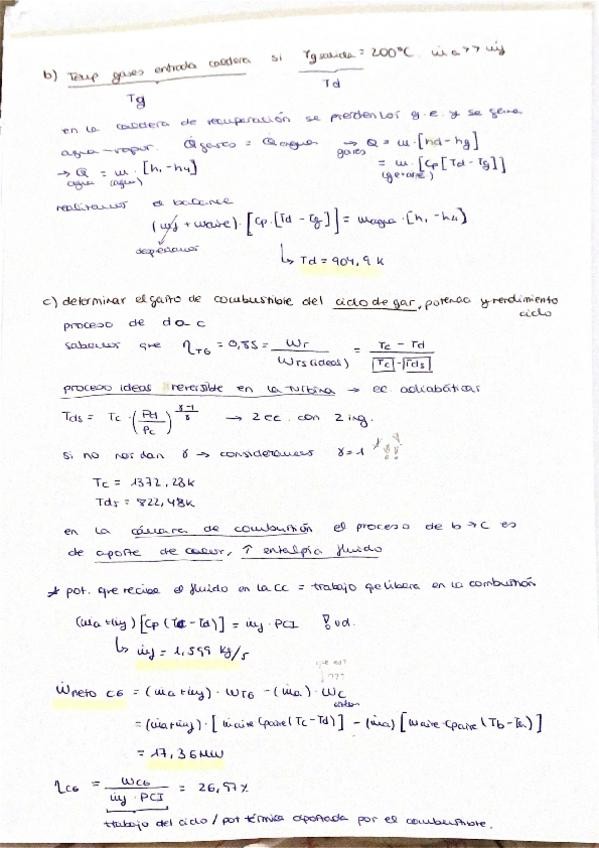 b) Temp gases entrada caldera si Tgsalida = 200°C. ṁa >> ṁf
Tg Td
en la caldera de recuperación se pierden los g.e. y se genera
agua-vapor. Q̇gases = Q̇agua → Q gases = ṁ·[hd-hg]
→ Q agua = ṁ (agua)·[h1-h4] = ṁ (g.e+aire)·[Cp[Td-Tg]]
realizamos el balance
(ṁf + ṁaire)·[Cp·[Td-Tg]] = ṁagua·[h1-h4]
despreciamos
↳ Td = 904,9 K
c) determinar el gasto de combustible del ciclo de gas, potencia y rendimiento
ciclo
proceso de d a c
sabemos que ηTG = 0,85 = Wr / Wrs(ideal) = Tc - Td / Tc - Tds
proceso ideal reversible en la turbina → ec adiabáticas
Tds = Tc·(Pd/Pc)^(γ-1/γ) → 2 ec. con 2 ing.
si no nos dan γ → consideramos γ = 1
Tc = 1372,28K
Tds = 822,48K
en la cámara de combustión el proceso de b→c es
de aporte de calor, ↑ entalpía fluido
* pot. que recibe el fluido en la CC = trabajo q libera en la combustión
(ṁa+ṁf)[Cp(Tc-Td)] = ṁf·PCI
↳ ṁf = 1,599 kg/s
que es?
???
Ẇneto CG = (ṁa+ṁf)·WTG - (ṁa)·WC
= (ṁa+ṁf)·[ṁaire Cpaire(Tc-Td)] - (ṁa)[ṁaire Cpaire(Tb-Ta)]
= 17,36 MW
ηCG = WCG / ṁf·PCI = 26,97%
trabajo del ciclo / pot térmica aportada por el combustible.